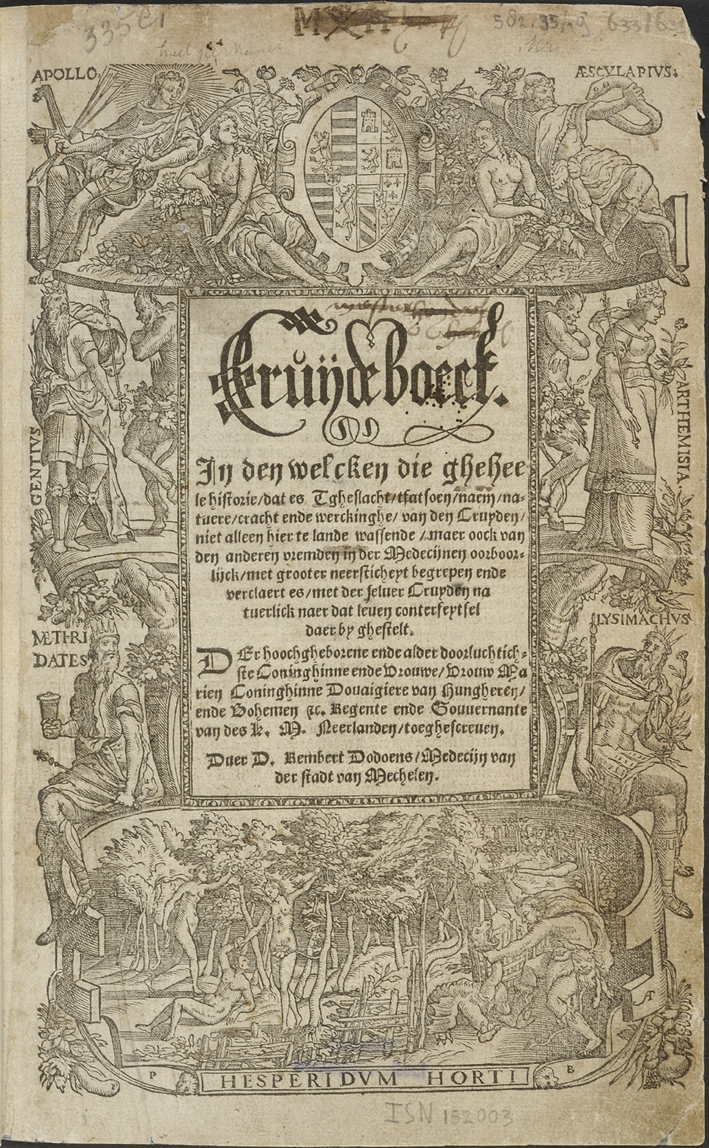 335C1
M
582.35.9
633/63
APOLLO.
ÆSCVLAPIVS.
GENTIVS
ARTHEMISIA
MÆTHRI
DATES
LYSIMACHVS
Cruÿdeboeck.
In den welcken die ghehee
le historie/dat es Tgheslacht/tfatsoen/naem/na-
tuere/cracht ende werckinghe/van den Cruyden/
niet alleen hier te lande wassende/maer oock van
den anderen vremden in der Medecijnen oorboor-
lijck/met grooter neersticheyt begrepen ende
verclaert es/met der seluer Cruyden na
tuerlick naer dat leuen conterfeytsel
daer by ghestelt.
DEr hoochgheborene ende alder doorluchtich-
ste Coninghinne ende Vrouwe/Vrouw Ma
rien Coninghinne Douaigiere van Hungheren/
ende Bohemen ⁊c. Regente ende Gouuernante
van des K. M. Neerlanden/toeghescreuen.
Duer D. Rembert Dodoens/Medecijn van
der stadt van Mechelen.
P
B
HESPERIDVM HORTI
ISN 152003